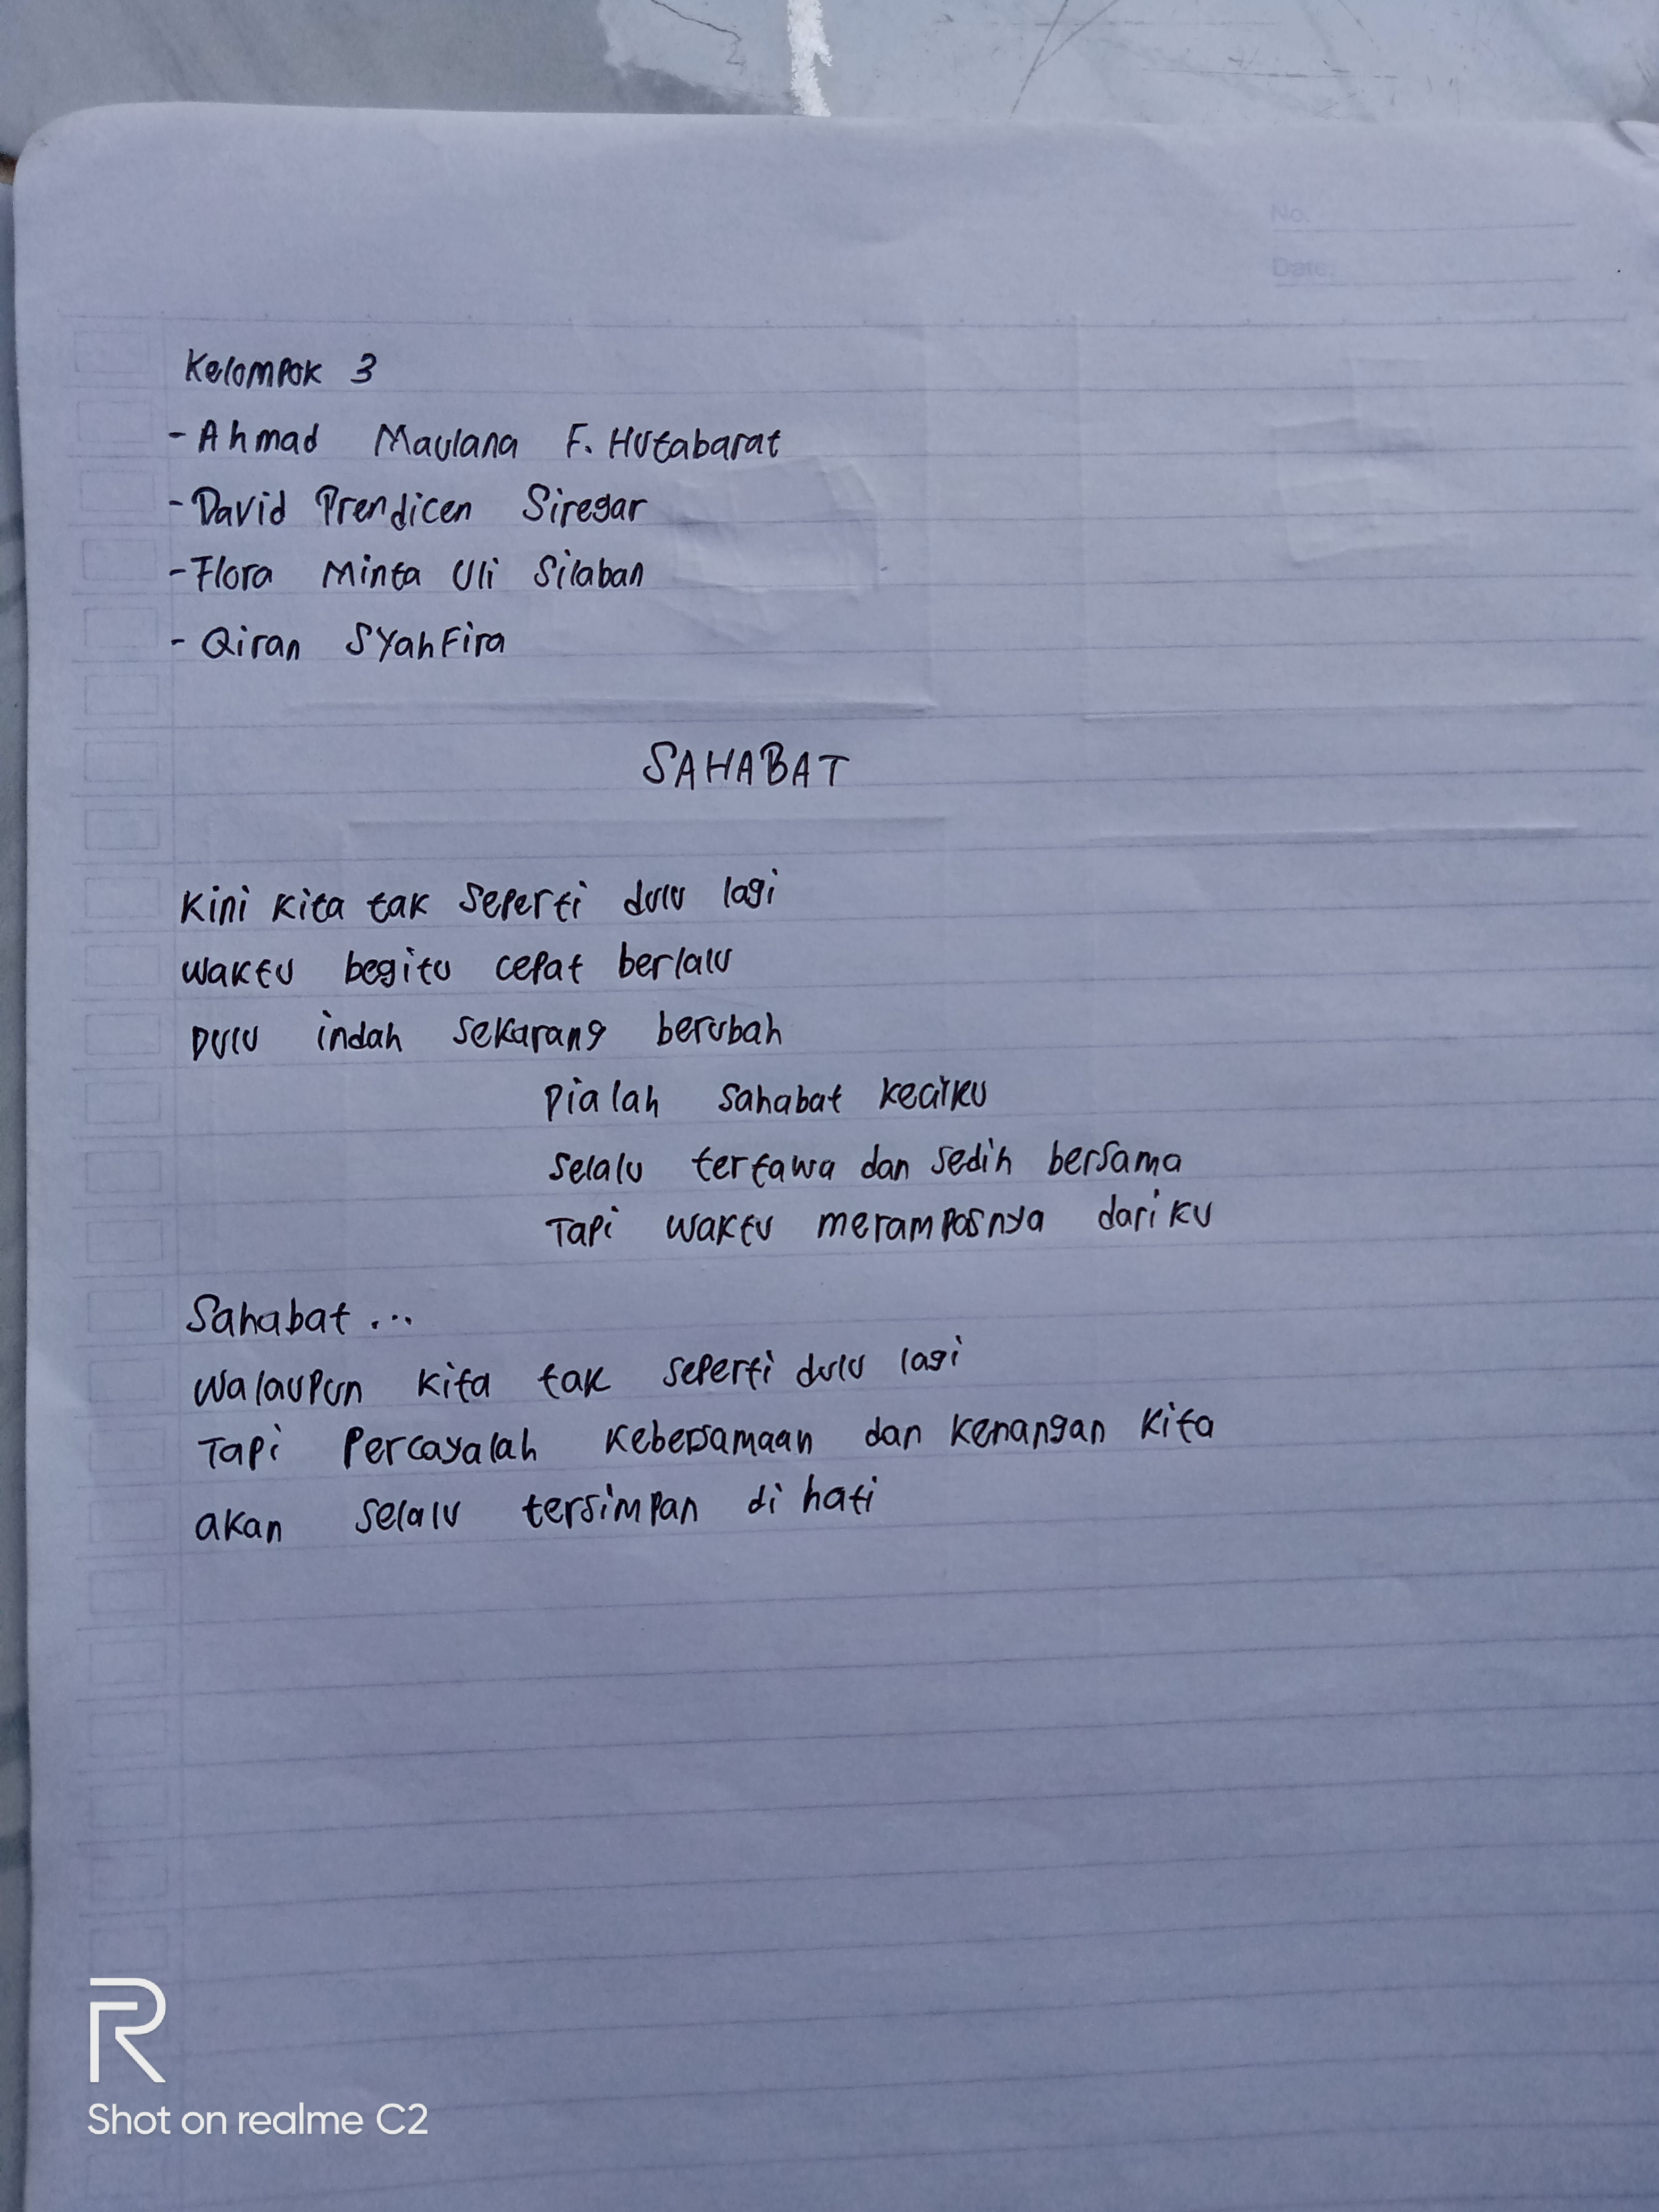 No.
Date
Kelompok 3
- Ahmad Maulana F. Hutabarat
- David Prendicen Siregar
- Flora Minta Uli Silaban
- Qiran Syahfira
SAHABAT
Kini kita tak seperti dulu lagi
waktu begitu cepat berlalu
Dulu indah sekarang berubah
Dialah sahabat kecilku
selalu tertawa dan sedih bersama
Tapi waktu merampasnya dariku
Sahabat...
walaupun kita tak seperti dulu lagi
Tapi percayalah kebersamaan dan kenangan kita
akan selalu tersimpan di hati
R
Shot on realme C2